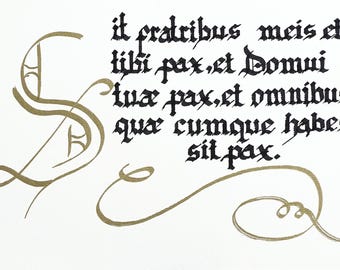 Sit fratribus meis et
tibi pax, et Domui
tuæ pax, et omnibus
quæ cumque habes
sit pax.